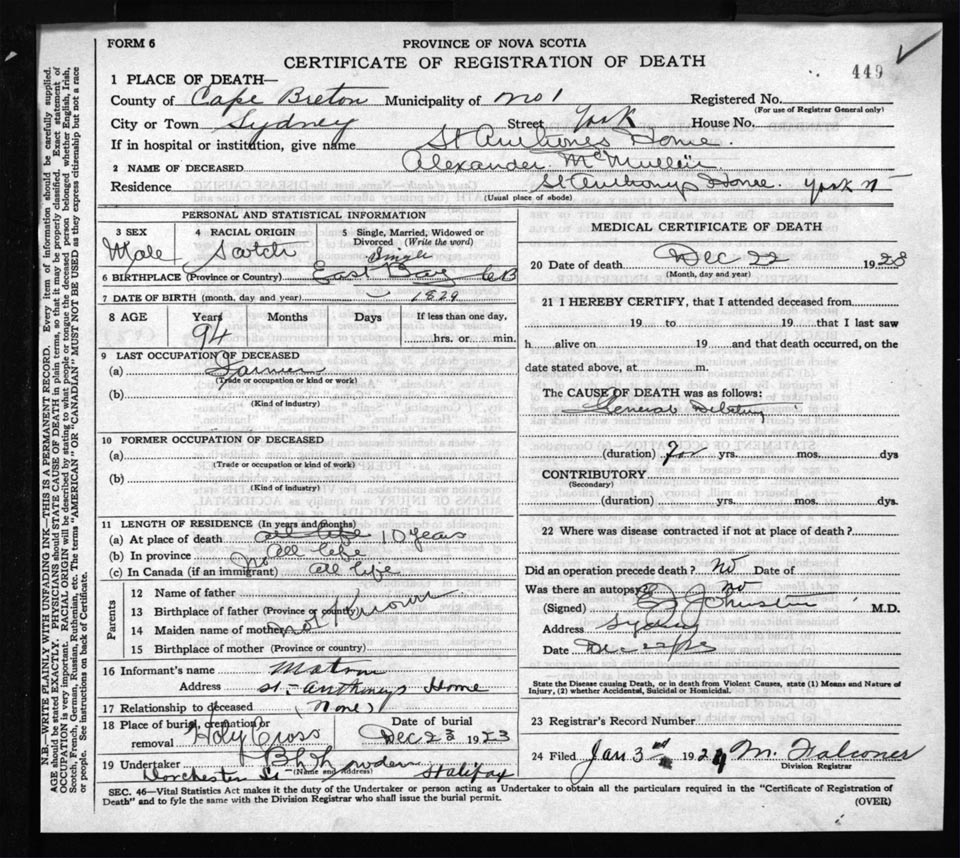 FORM 6
PROVINCE OF NOVA SCOTIA
CERTIFICATE OF REGISTRATION OF DEATH
449
1 PLACE OF DEATH—
County of Cape Breton Municipality of No 1 Registered No.
(For use of Registrar General only)
City or Town Sydney Street York House No.
If in hospital or institution, give name St Anthonys Home.
2 NAME OF DECEASED Alexander McMullin
Residence St Anthonys Home. York
(Usual place of abode)
PERSONAL AND STATISTICAL INFORMATION
3 SEX Male
4 RACIAL ORIGIN Scotch
5 Single, Married, Widowed or Divorced (Write the word) Single
6 BIRTHPLACE (Province or Country) East Bay CB
7 DATE OF BIRTH (month, day and year) 1829
8 AGE Years 94 Months Days If less than one day,
hrs. or min.
9 LAST OCCUPATION OF DECEASED
(a) Farmer
(Trade or occupation or kind or work)
(b)
(Kind of industry)
10 FORMER OCCUPATION OF DECEASED
(a)
(Trade or occupation or kind of work)
(b)
(Kind of industry)
11 LENGTH OF RESIDENCE (In years and months)
(a) At place of death all life 10 years
(b) In province all life
(c) In Canada (if an immigrant) No all life
Parents
12 Name of father
13 Birthplace of father (Province or county)
14 Maiden name of mother not known
15 Birthplace of mother (Province or country)
16 Informant's name Matron
Address St. Anthonys Home
17 Relationship to deceased (None)
18 Place of burial, cremation or removal Holy Cross
Date of burial Dec 23 1923
19 Undertaker
(Name and Address)
Dorchester St Halifax
MEDICAL CERTIFICATE OF DEATH
20 Date of death Dec 22 1923
(Month, day and year)
21 I HEREBY CERTIFY, that I attended deceased from
19 to 19 that I last saw
h alive on 19 and that death occurred, on the
date stated above, at m.
The CAUSE OF DEATH was as follows:
General Debility
(duration) for yrs. mos. dys
CONTRIBUTORY
(Secondary)
(duration) yrs. mos. dys.
22 Where was disease contracted if not at place of death?
Did an operation precede death? No Date of
Was there an autopsy? no
(Signed) Johnston M.D.
Address Sydney
Date Dec 22
State the Disease causing Death, or in death from Violent Causes, state (1) Means and Nature of
Injury, (2) whether Accidental, Suicidal or Homicidal.
23 Registrar's Record Number
24 Filed Jan 3rd 1924 M. Falconer
Division Registrar
SEC. 46—Vital Statistics Act makes it the duty of the Undertaker or person acting as Undertaker to obtain all the particulars required in the "Certificate of Registration of
Death" and to fyle the same with the Division Registrar who shall issue the burial permit.
(OVER)
N.B.—WRITE PLAINLY WITH UNFADING INK—THIS IS A PERMANENT RECORD. Every item of information should be carefully supplied.
AGE should be stated EXACTLY. PHYSICIANS should STATE CAUSE OF DEATH in plain terms, so that it may be properly classified. Exact statement of
OCCUPATION is very important. RACIAL ORIGIN will be described by stating to what people or tongue the deceased person belonged whether English, Irish,
Scotch, French, German, Russian, Ruthenian, etc. The terms "AMERICAN" OR "CANADIAN" MUST NOT BE USED as they express citizenship but not a race
or people. See instructions on back of Certificate.